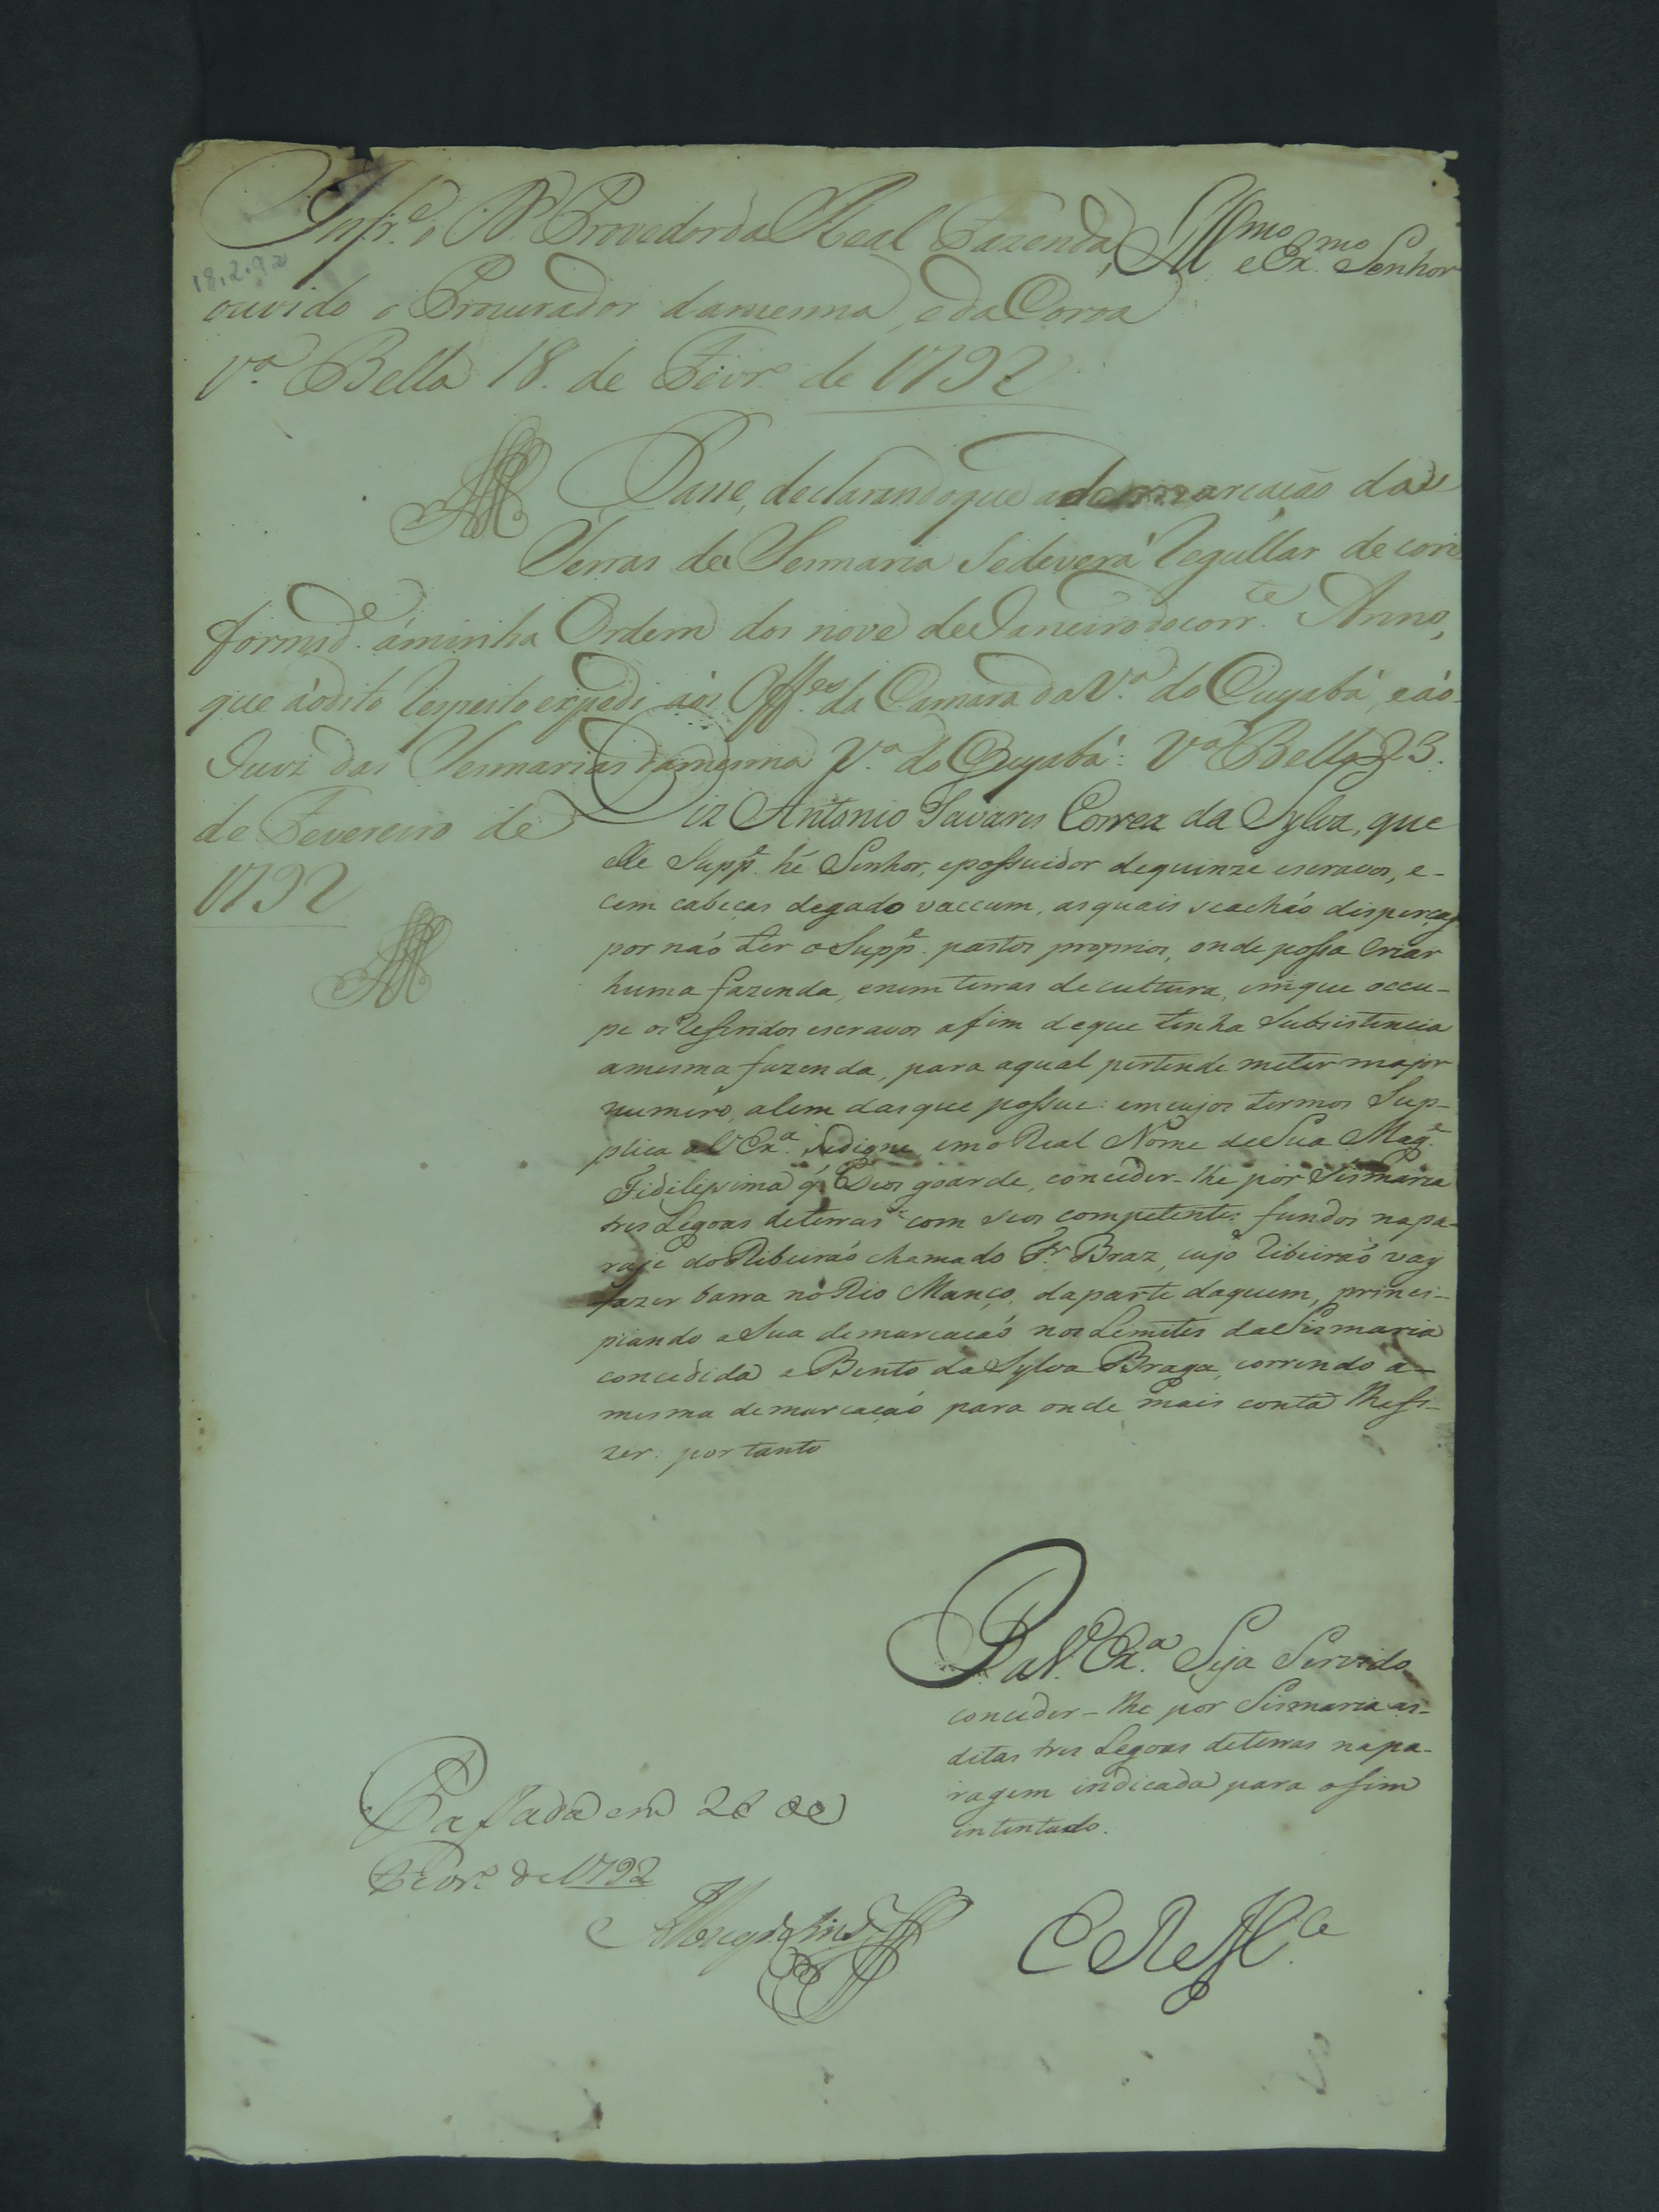 Infr.e o D.r Provedor da Real Fazenda,
18.2.92
ouvido o Procurador damesma, eda Coroa
V.a Bella 18. de Fevr.o de 1792
Ill.mo e Ex.mo Senhor
Passe, declarandoque ademarcação das
Terras de Sesmaria sedeverá regullar decon
formid.e áminha Ordem dos nove deJaneirodocorr.te Anno,
que áodito respeito expedi aos Off.es da Camara da V.a do Cuyabá, eáo
Juiz das Sesmarias damesma V.a do Cuyabá: V.a Bella 23.
de Fevereiro de
1792
Diz Antonio Tavares Correa da Sylva, que
elle Supp.e hé Senhor, epossuidor dequinze escravos, e-
cem cabeças degado vaccum, asquais seacháo disperças
por náo ter oSupp.e pastos proprios, onde possa criar
huma fazenda, enem terras decultura, emque occu-
pe os refferidos escravos afim deque tenha subsistencia
amesma fazenda, para aqual pertende meter major
numero, alem dasque possue: emcujos termos Sup-
plica aV.Ex.a sedigne, emo Real Nome deSua Mag.e
Fidelissima q́ Deos goarde, conceder-lhe por Sismaria
tres Legoas deterras com seos competentes fundos napa-
raje do Ribeiráo chamado Fr. Braz, cujo ribeiráo vay
fazer barra no Rio Manço, daparte daquem, princi-
piando aSua demarcaçaó nos Lemites daSismaria
concedida a Bento daSylva Braga, correndo a-
mesma demarcaçaó para onde mais conta lhefi-
zer: portanto
P.aV.Ex.a Seja Servido
conceder-lhe por Sismaria as-
ditas tres Legoas deterras napa-
ragem indicada para ofim
intentado.
Passada em 26 de
Fevr.o de 1792
E R M.ce